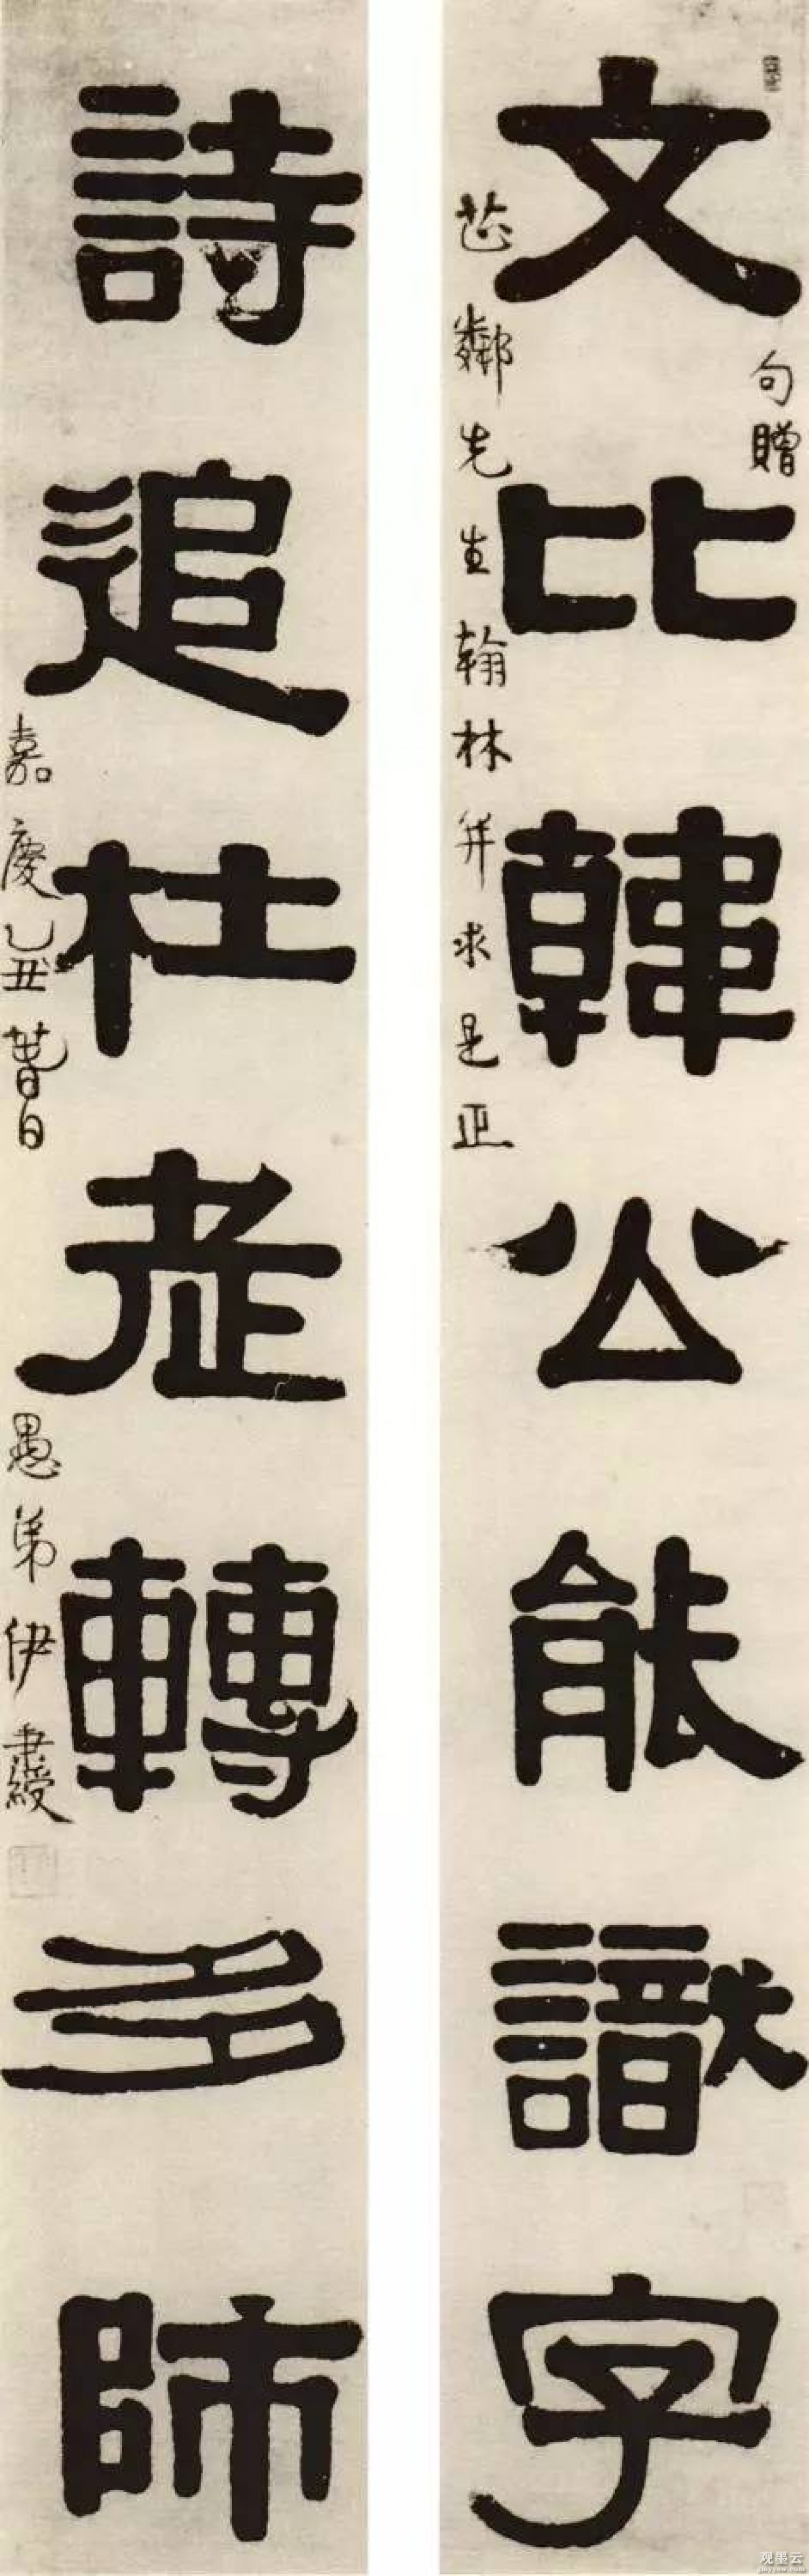 文比韓公能識字
句贈
芷鄰先生翰林并求是正
詩追杜老轉多師
嘉慶乙丑
愚弟伊秉綬
观墨云